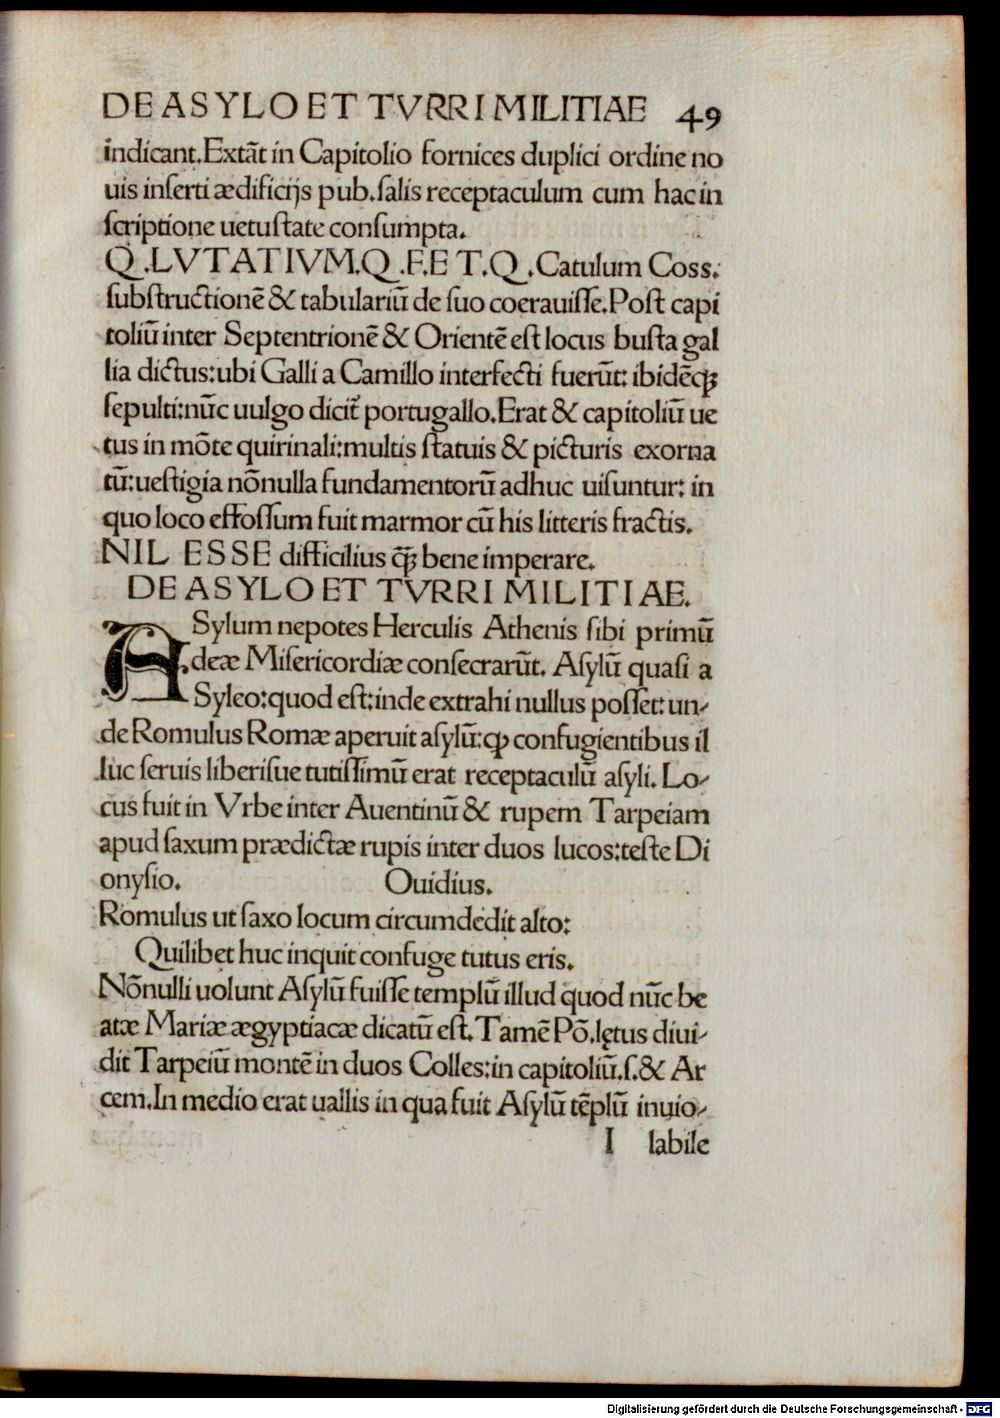 DE ASYLO ET TVRRI MILITIAE 49
indicant. Extāt in Capitolio fornices duplici ordine no
uis inſerti ædificijs pub. ſalis receptaculum cum hac in
ſcriptione uetuſtate conſumpta.
Q. LVTATIVM. Q. F. ET. Q. Catulum Coss.
ſubſtructionē & tabulariū de ſuo coerauiſſe. Poſt capi
toliū inter Septentrionē & Orientē eſt locus buſta gal
lia dictus: ubi Galli a Camillo interfecti fuerūt: ibidēq;
ſepulti: nūc uulgo dicit̄ portugallo. Erat & capitoliū ue
tus in mōte quirinali: multis ſtatuis & picturis exorna
tū: ueſtigia nōnulla fundamentorū adhuc uiſuntur: in
quo loco effoſſum fuit marmor cū his litteris fractis.
NIL ESSE difficilius q̄ȝ bene imperare.
DE ASYLO ET TVRRI MILITIAE.
ASylum nepotes Herculis Athenis ſibi primū
deæ Miſericordiæ conſecrarūt. Aſylū quaſi a
Syleo: quod eſt: inde extrahi nullus poſſet: un-
de Romulus Romæ aperuit aſylū: ꝙ confugientibus il
luc ſeruis liberiſue tutiſſimū erat receptaculū aſyli. Lo-
cus fuit in Vrbe inter Auentinū & rupem Tarpeiam
apud ſaxum prædictæ rupis inter duos lucos: teſte Di
onyſio. Ouidius.
Romulus ut ſaxo locum circumdedit alto:
Quilibet huc inquit confuge tutus eris.
Nōnulli uolunt Aſylū fuiſſe templū illud quod nūc be
atæ Mariæ ægyptiacæ dicatū eſt. Tamē Pō. lętus diui-
dit Tarpeiū montē in duos Colles: in capitoliū. ſ. & Ar
cem. In medio erat uallis in qua fuit Aſylū tēplū inuio-
I labile
Digitalisierung gefördert durch die Deutsche Forschungsgemeinschaft - DFG